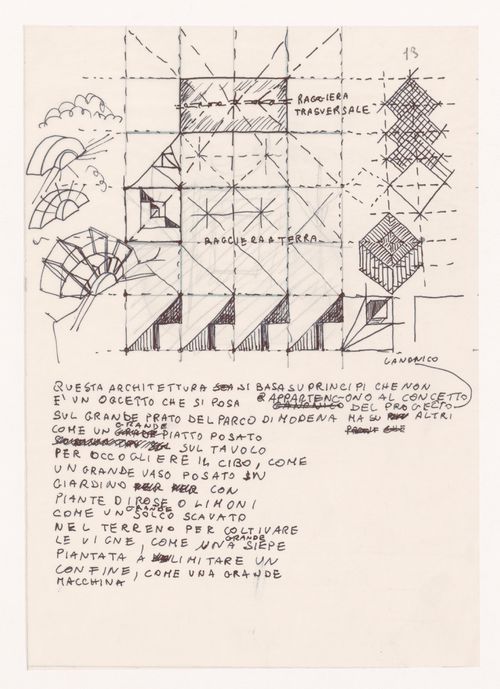 13
RAGGIERA
TRASVERSALE
RAGGIERA A TERRA
CANONICO
QUESTA ARCHITETTURA SI BASA SU PRINCIPI CHE NON
E' UN OGGETTO CHE SI POSA APPARTENGONO AL CONCETTO
CANONICO DEL PROGETTO
SUL GRANDE PRATO DEL PARCO DI MODENA MA SU ALTRI
COME UN GRANDE PIATTO POSATO
SUL TAVOLO
PER OCCOGLIERE IL CIBO, COME
UN GRANDE VASO POSATO IN
GIARDINO CON
PIANTE DI ROSE O LIMONI
COME UN GRANDE SOLCO SCAVATO
NEL TERRENO PER COLTIVARE
LE VIGNE, COME UNA GRANDE SIEPE
PIANTATA A LIMITARE UN
CONFINE, COME UNA GRANDE
MACCHINA